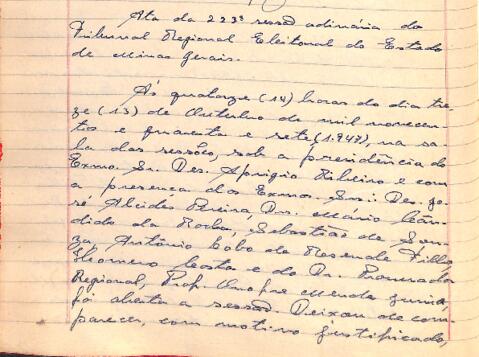 Ata da 223ª sessão ordinária do
Tribunal Regional Eleitoral do Estado
de Minas Gerais.
Ás quatorze (14) horas do dia tre-
ze (13) de Outubro de mil novecen-
tos e quarenta e sete, (1.947), na sa-
la das sessões, sob a presidência do
Exmo. Sr. Des. Aprigio Ribeiro e com
a presença dos Exmo. Srs.: Des. Jo-
sé Alcides Pereira, Drs. Mário Cân-
dido da Rocha, Sebastião de Sou-
za, Antônio Lobo de Resende Filho,
Homero Costa e do Dr. Procurador
Regional, Prof. Onofre Mendes Junior,
foi aberta a sessão. Deixou de com-
parecer, com motivo justificado,